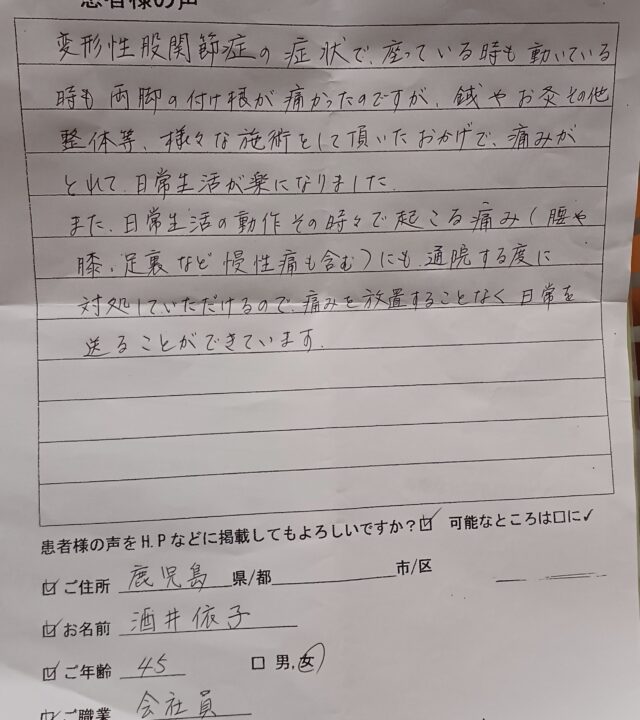 患者様の声
変形性股関節症の症状で、座っている時も動いている
時も両脚の付け根が痛かったのですが、鍼やお灸その他
整体等、様々な施術をして頂いたおかげで、痛みが
とれて、日常生活が楽になりました.
また、日常生活の動作その時々で起こる痛み(腰や
膝、足裏など慢性痛も含む)にも、通院する度に
対処していただけるので、痛みを放置することなく日常を
送ることができています.
患者様の声をH.Pなどに掲載してもよろしいですか?☑ 可能なところは□に✓
☑ご住所 鹿児島 県/都 市/区
☑お名前 酒井依子
☑ご年齢 45 □ 男,女
☑ご職業 会社員